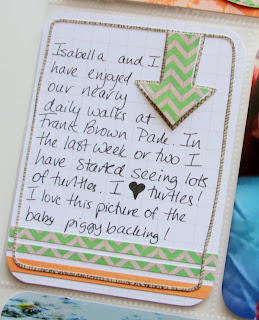 Isabella and I
have enjoyed
our nearly
daily walks at
Frank Brown Park. In
the last week or two I
have started seeing lots
of turtles. I ♥ turtles!
I love this picture of the
baby piggybacking!